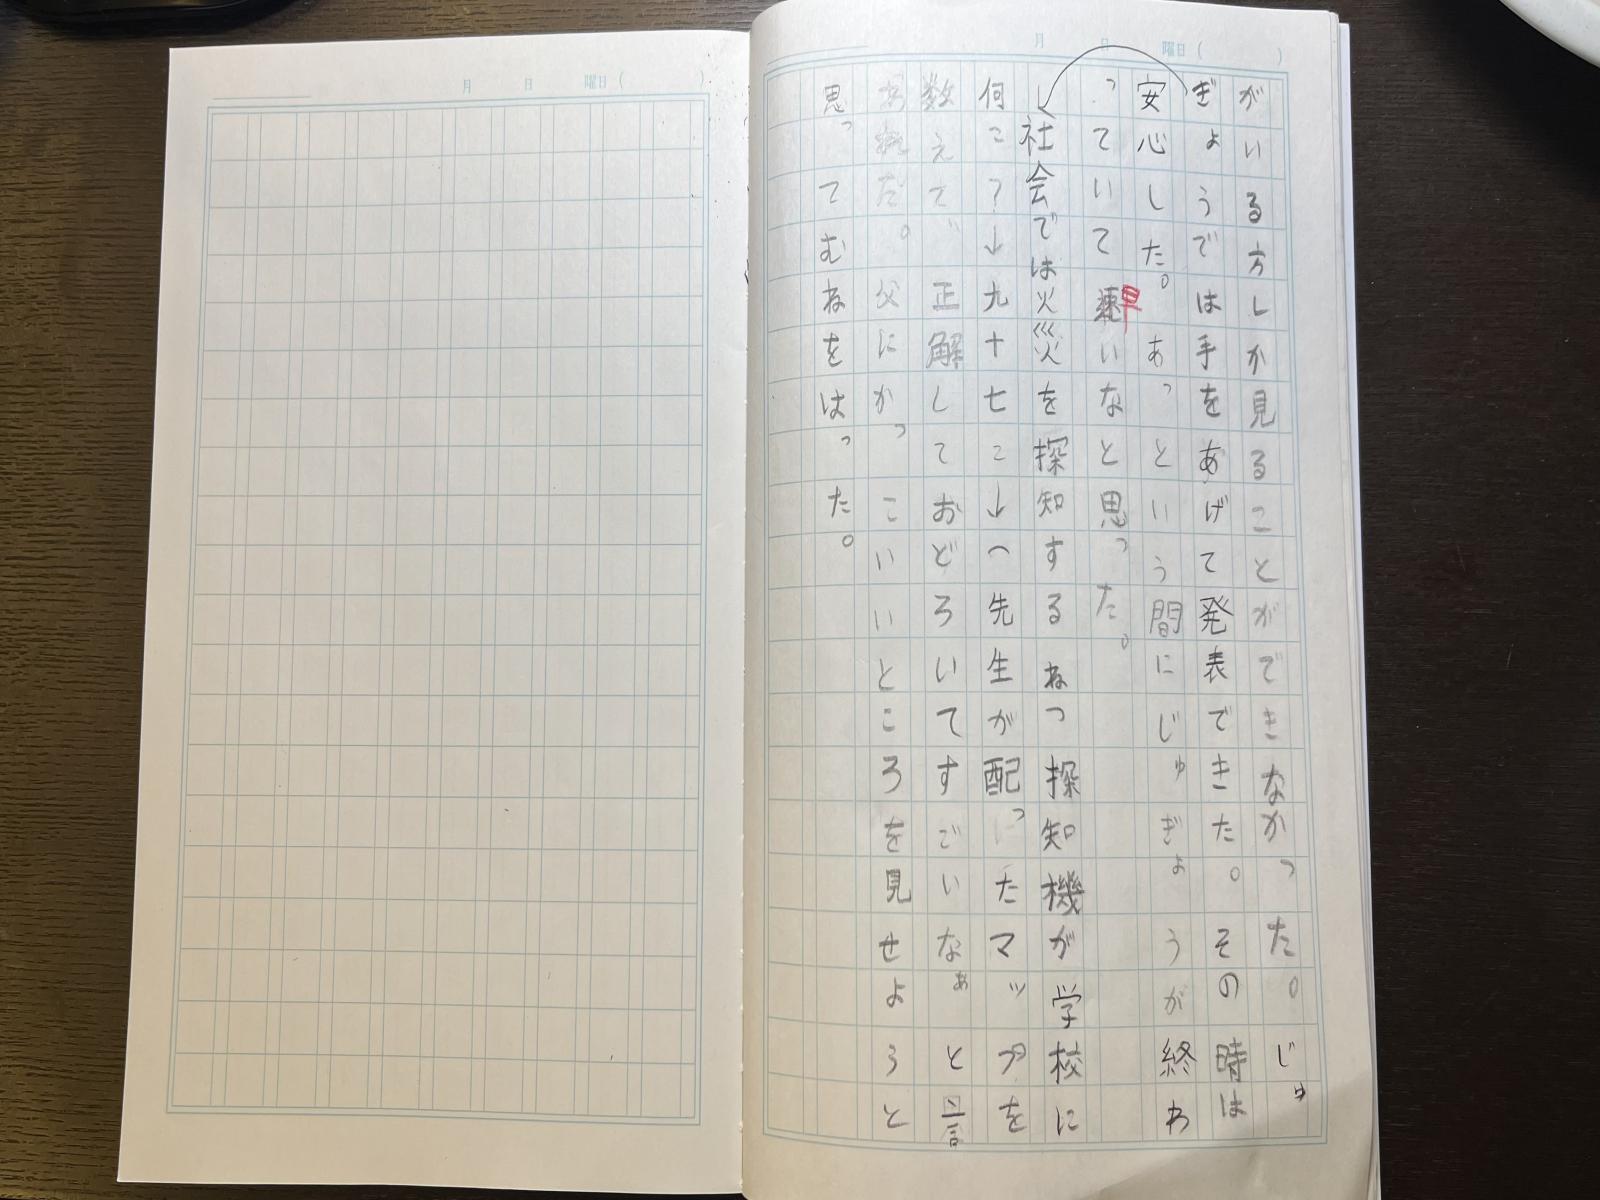 月　日　曜日（　）
がいる方しか見ることができなかった。じゅ
ぎょうでは手をあげて発表できた。その時は
安心した。あっという間にじゅぎょうが終わ
っていて早いなと思った。
社会では火災を探知するねつ探知機が学校に
何こ？↓九十七こ↓（先生が配ったマップを
数えて正解しておどろいてすごいなぁと言
われた。父にかっこいいところを見せようと
思ってむねをはった。
月　日　曜日（　）